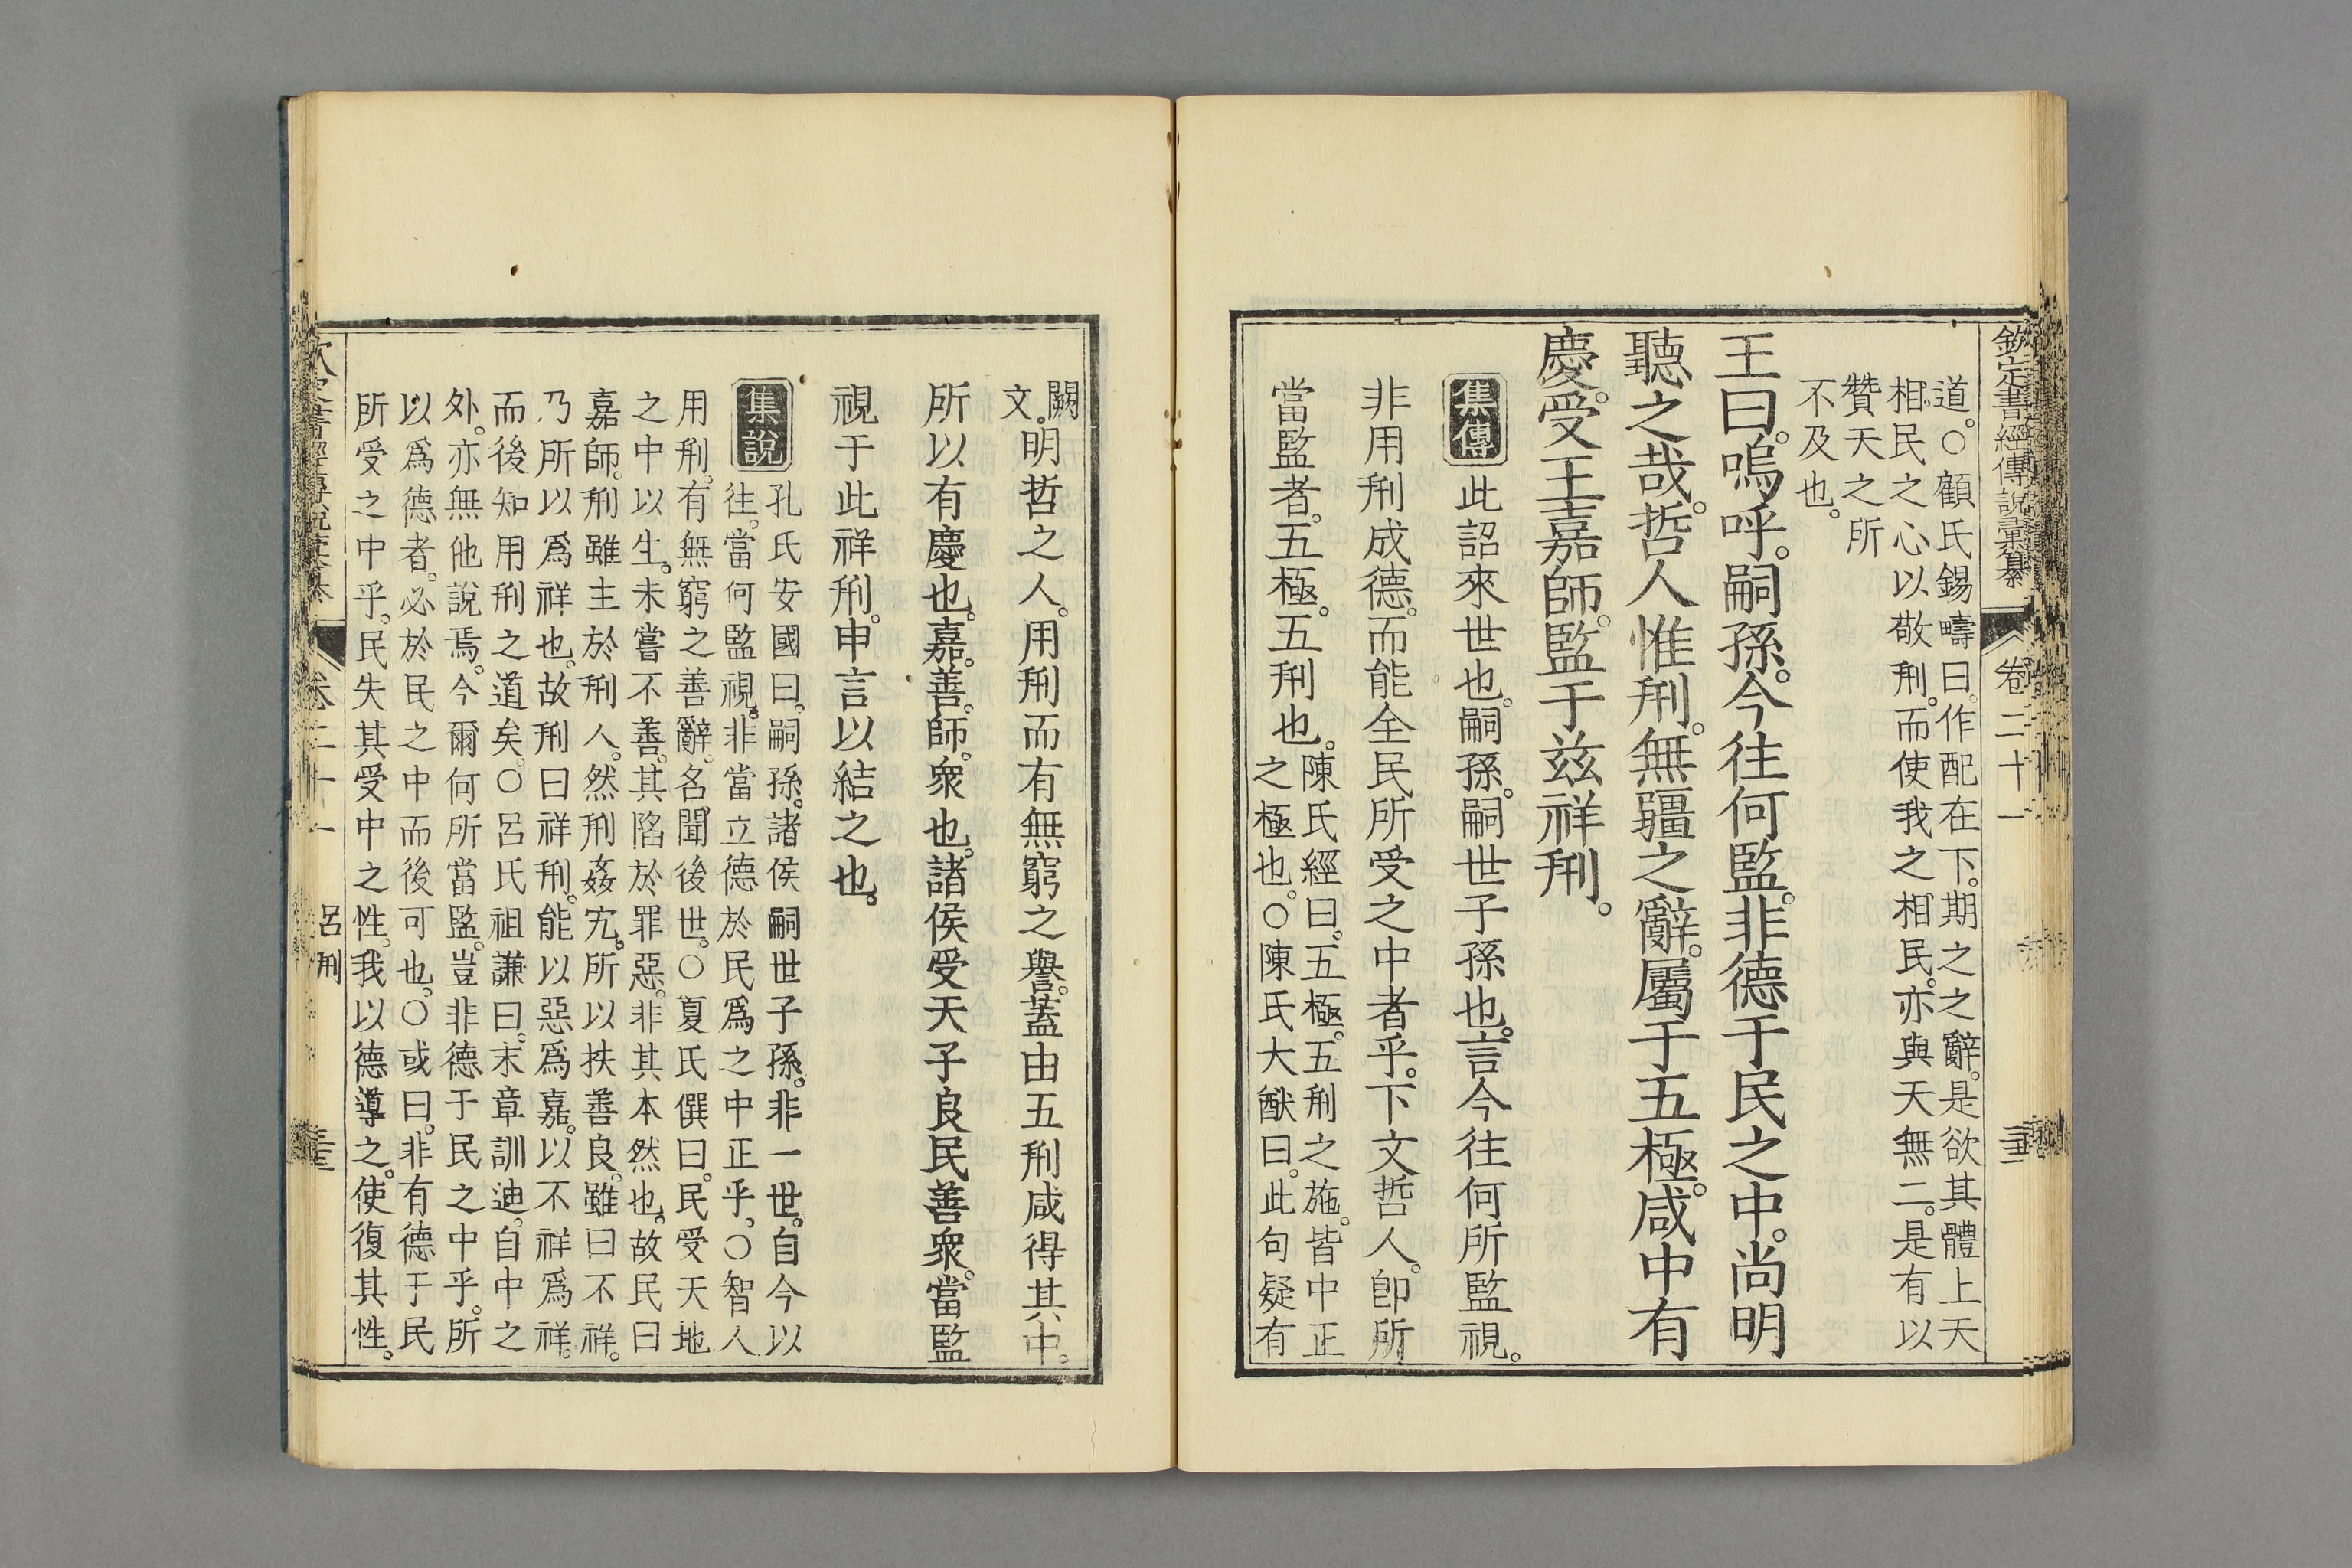 欽定書經傳說彙纂 卷二十一
道。○顧氏錫疇曰。作配在下。期之之辭。是欲其體上天
相民之心以敬刑。而使我之相民。亦與天無二。是有以
贊天之所
不及也。
王曰。嗚呼。嗣孫。今往何監。非德于民之中。尚明
聽之哉。哲人惟刑。無疆之辭。屬于五極。咸中有
慶。受王嘉師。監于兹祥刑。
集傳 此詔來世也。嗣孫。嗣世子孫也。言今往何所監視。
非用刑成德。而能全民所受之中者乎。下文哲人。卽所
當監者。五極。五刑也。陳氏經曰。五極。五刑之施。皆中正
之極也。○陳氏大猷曰。此句疑有
闕
文。明哲之人。用刑而有無窮之譽。蓋由五刑咸得其中。
所以有慶也。嘉。善。師。衆也。諸侯受天子良民善衆。當監
視于此祥刑。申言以結之也。
集說 孔氏安國曰。嗣孫。諸侯嗣世子孫。非一世。自今以
往。當何監視。非當立德於民爲之中正乎。○智人
用刑。有無窮之善辭。名聞後世。○夏氏僎曰。民受天地
之中以生。未嘗不善。其陷於罪惡。非其本然也。故民曰
嘉師。刑雖主於刑人。然刑姦宄。所以扶善良。雖曰不祥。
乃所以爲祥也。故刑曰祥刑。能以惡爲嘉。以不祥爲祥。
而後知用刑之道矣。○呂氏祖謙曰。末章訓迪。自中之
外。亦無他說焉。今爾何所當監。豈非德于民之中乎。所
以爲德者。必於民之中而後可也。○或曰。非有德于民
所受之中乎。民失其受中之性。我以德導之。使復其性。
卷二十一 呂刑